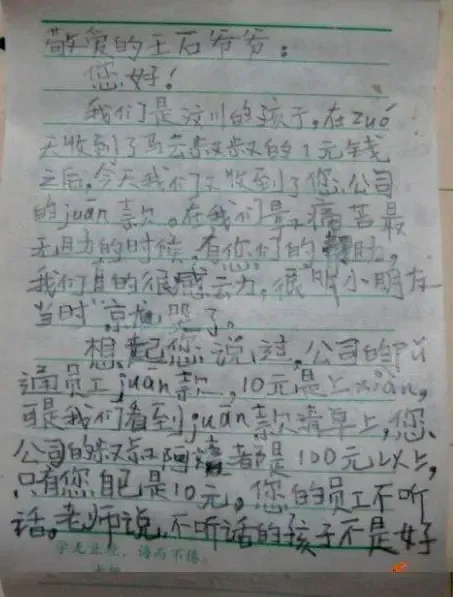 敬爱的王石爷爷：
您好！
我们是汶川的孩子，在zuó
天收到了马云叔叔的1元钱
之后，今天我们又收到了您公司
的juān款。在我们最痛苦最
无助的时候，有你们的帮助，
我们真的很感动，很多小朋友
当时就哭了。
想起您说过，公司的pǔ
通员工juān款，10元是上xiàn，
可是我们看到juān款清单上，您
公司的叔叔阿姨都是100元以上，
只有您自己是10元。您的员工不听
话。老师说，不听话的孩子不是好